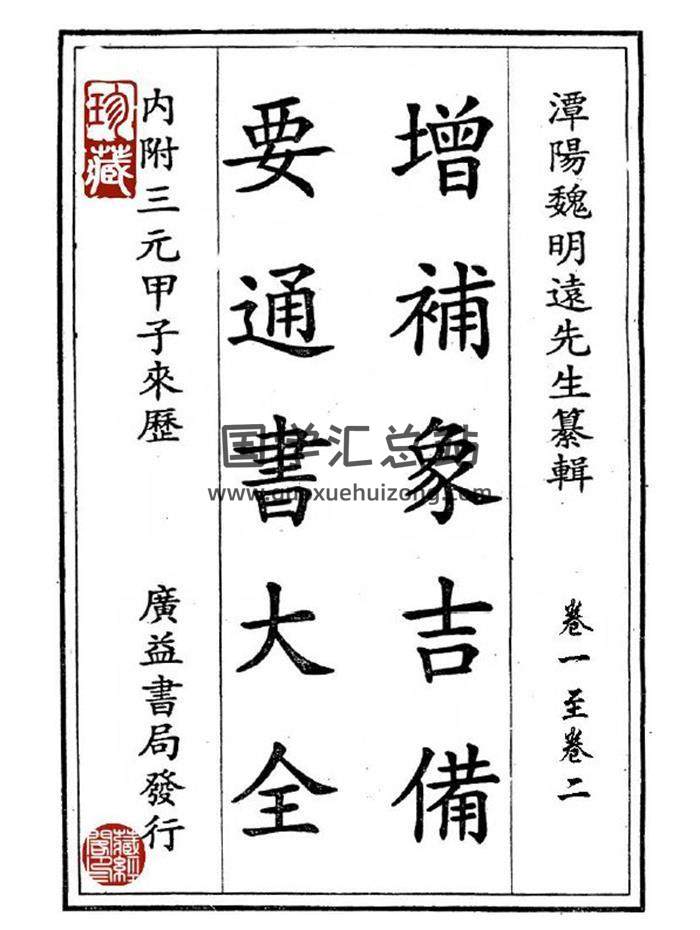 潭陽魏明遠先生纂輯
卷一至卷二
增補象吉備
要通書大全
內附三元甲子來歷
廣益書局發行
珍藏
国学汇总站
www.guoxuehuizong.com